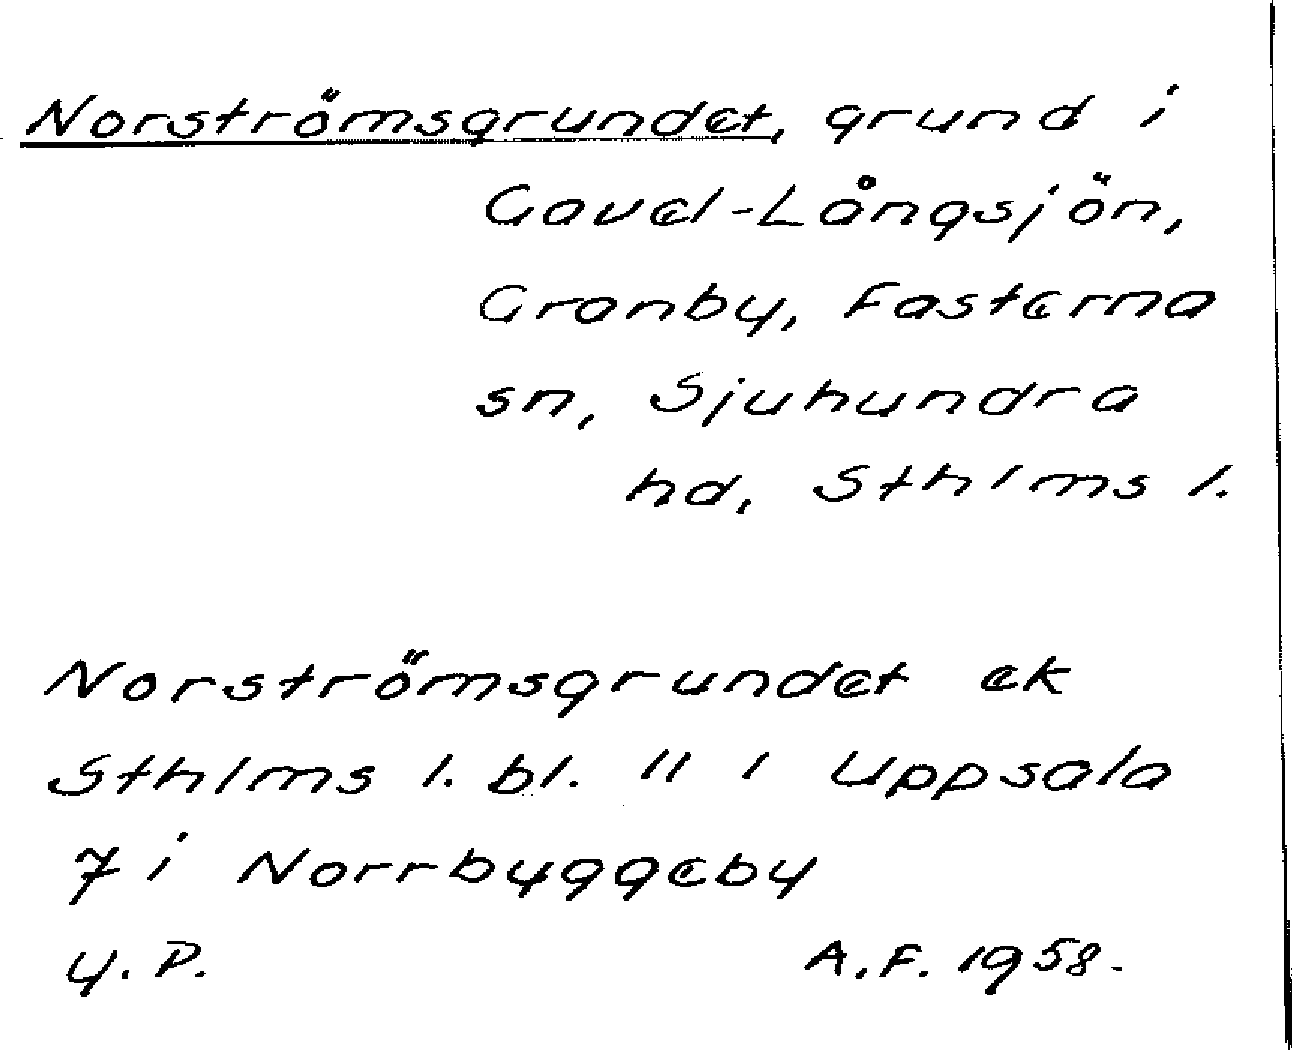 Norströmsgrundet, grund i
Gavel-Långsjön,
Granby, Fasterna
sn, Sjuhundra
hd, Sthlms l.
Norströmsgrundet ek
Sthlms l. bl. 11 1 Uppsala
7 i Norrbyggeby
y. P. A.F. 1958.